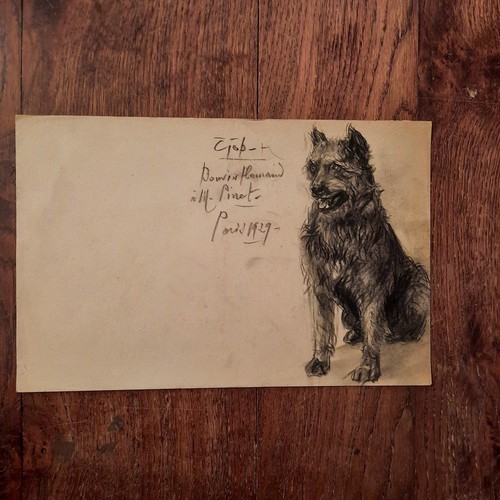 Bouvier Flamand
à M. Pinet -
Paris 1929 -